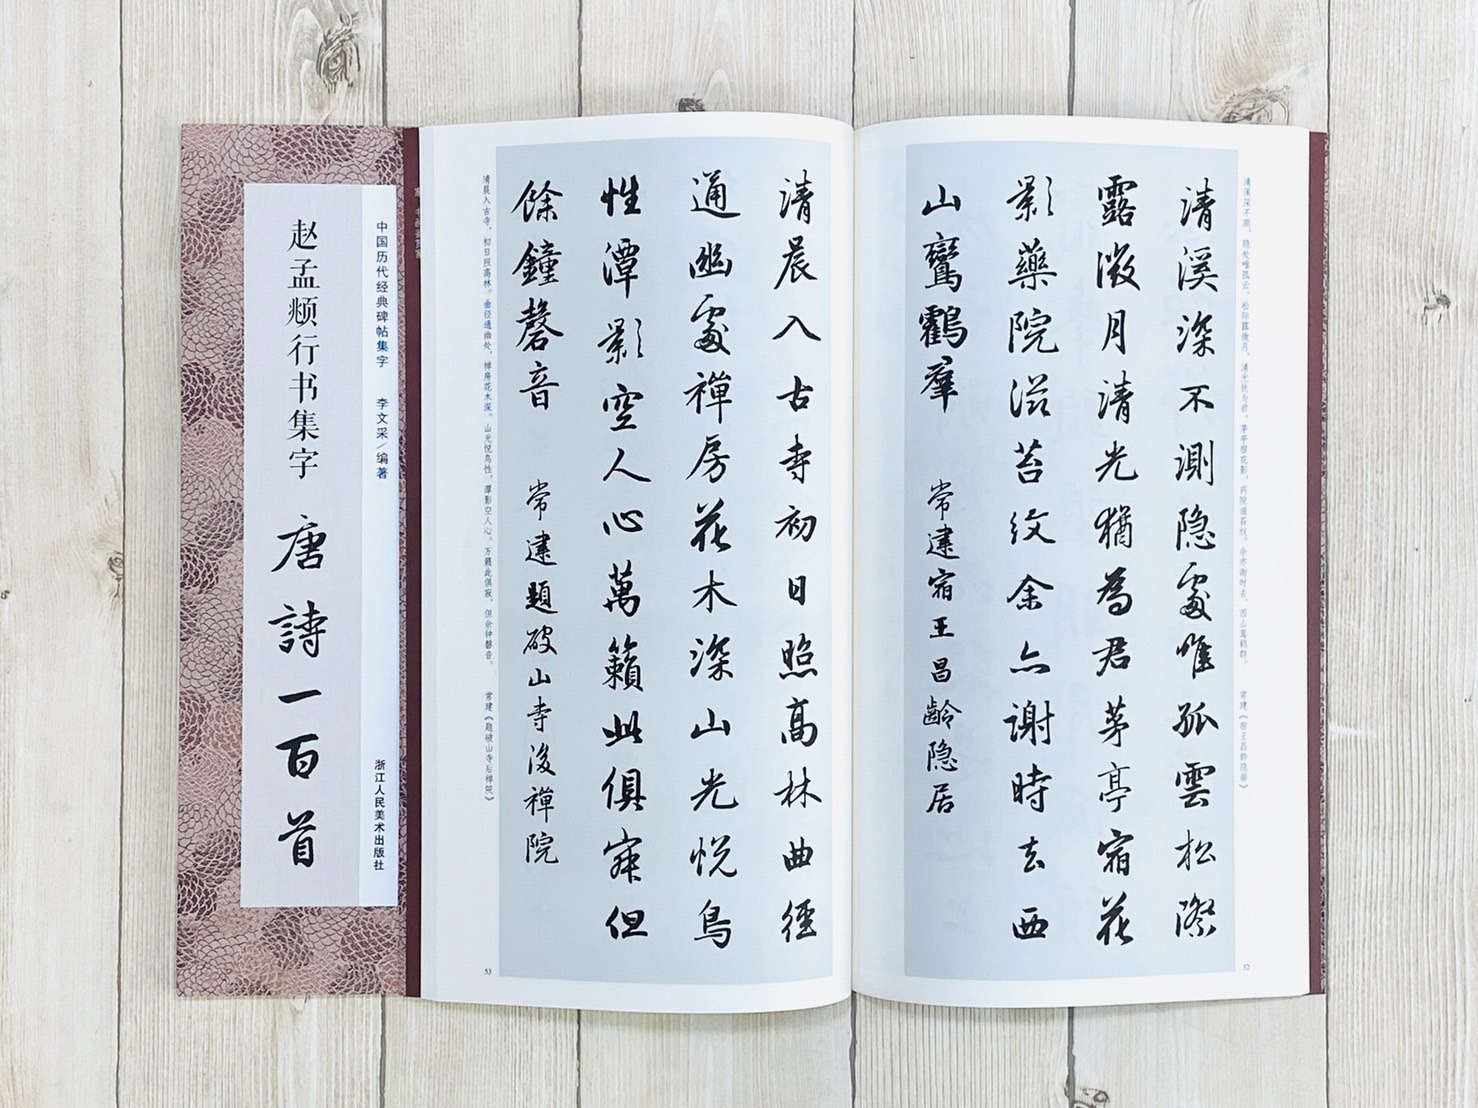 清溪深不测，隐处唯孤云。松际露微月，清光犹为君。茅亭宿花影，药院滋苔纹。余亦谢时去，西山鸾鹤群。 常建《宿王昌龄隐居》
清溪深不測隐處惟孤雲松際
露微月清光猶為君茅亭宿花
影藥院滋苔紋余亦謝時去西
山鸞鶴羣 常建宿王昌齡隐居
52
清晨入古寺初日照高林曲徑
通幽處禪房花木深山光悅鳥
性潭影空人心萬籟此俱寂但
餘鐘磬音 常建題破山寺後禪院
清晨入古寺，初日照高林。曲径通幽处，禅房花木深。山光悦鸟性，潭影空人心。万籁此俱寂，但余钟磬音。 常建《题破山寺后禅院》
53
中国历代经典碑帖集字 李文采/编著 浙江人民美术出版社
赵孟頫行书集字 唐詩一百首